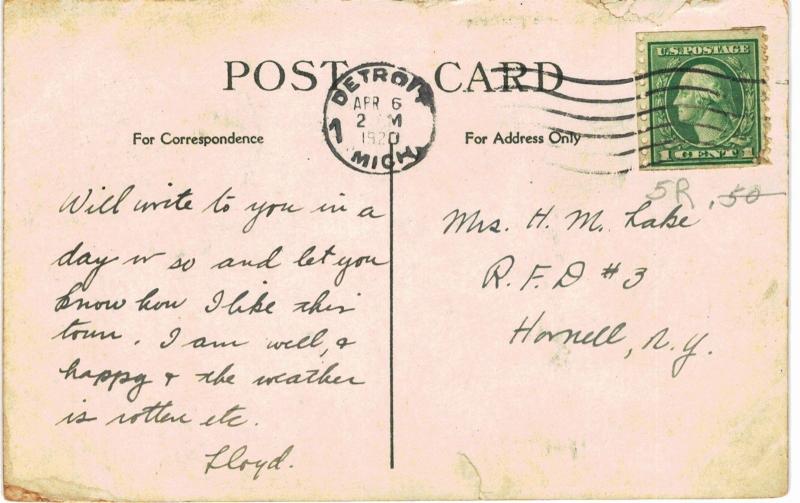 POST CARD
DETROIT
APR 6
2 M
1920
MICH.
1
U.S. POSTAGE
1 CENT 1
For Correspondence
For Address Only
5R .50
Will write to you in a
day or so and let you
know how I like this
town. I am well, &
happy & the weather
is rotten etc.
Lloyd.
Mrs. H. M. Lake
R. F. D #3
Hornell, N.Y.